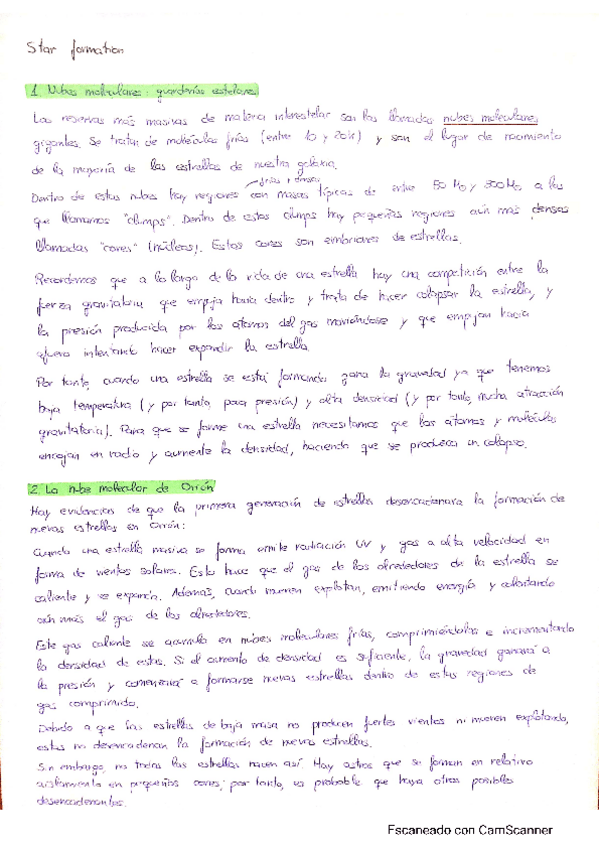 Star formation
1. Nubes moleculares: guarderías estelares
Las reservas más masivas de materia interestelar son las llamadas nubes moleculares
gigantes. Se tratan de moléculas frías (entre 10 y 20K) y son el lugar de nacimiento
de la mayoría de las estrellas de nuestra galaxia.
frías y densas
Dentro de estas nubes hay regiones con masas típicas de entre 50 Mo y 500 Mo a las
que llamamos "clumps". Dentro de estos clumps hay pequeñas regiones aún más densas
llamadas "cores" (núcleos). Estos cores son embriones de estrellas.
Recordemos que a lo largo de la vida de una estrella hay una competición entre la
fuerza gravitatoria que empuja hacia dentro y trata de hacer colapsar la estrella, y
la presión producida por los átomos del gas moviéndose y que empujan hacia
afuera intentando hacer expandir la estrella.
Por tanto, cuando una estrella se está formando gana la gravedad ya que tenemos
baja temperatura (y por tanto, poca presión) y alta densidad (y por tanto, mucha atracción
gravitatoria). Para que se forme una estrella necesitamos que los átomos y moléculas
encojan en radio y aumente la densidad, haciendo que se produzca un colapso.
2. La nube molecular de Orión
Hay evidencias de que la primera generación de estrellas desencadenara la formación de
nuevas estrellas en Orión:
Cuando una estrella masiva se forma emite radiación UV y gas a alta velocidad en
forma de vientos solares. Esto hace que el gas de los alrededores de la estrella se
caliente y se expanda. Además, cuando mueren explotan, emitiendo energía y calentando
aún más el gas de los alrededores.
Este gas caliente se acumula en nubes moleculares frías, comprimiéndolas e incrementando
la densidad de estas. Si el aumento de densidad es suficiente, la gravedad ganará a
la presión y comenzará a formarse nuevas estrellas dentro de estas regiones de
gas comprimido.
Debido a que las estrellas de baja masa no producen fuertes vientos ni mueren explotando,
estas no desencadenan la formación de nuevas estrellas.
Sin embargo, no todas las estrellas nacen así. Hay astros que se forman en relativo
aislamiento en pequeños cores; por tanto, es probable que haya otros posibles
desencadenantes.
Escaneado con CamScanner